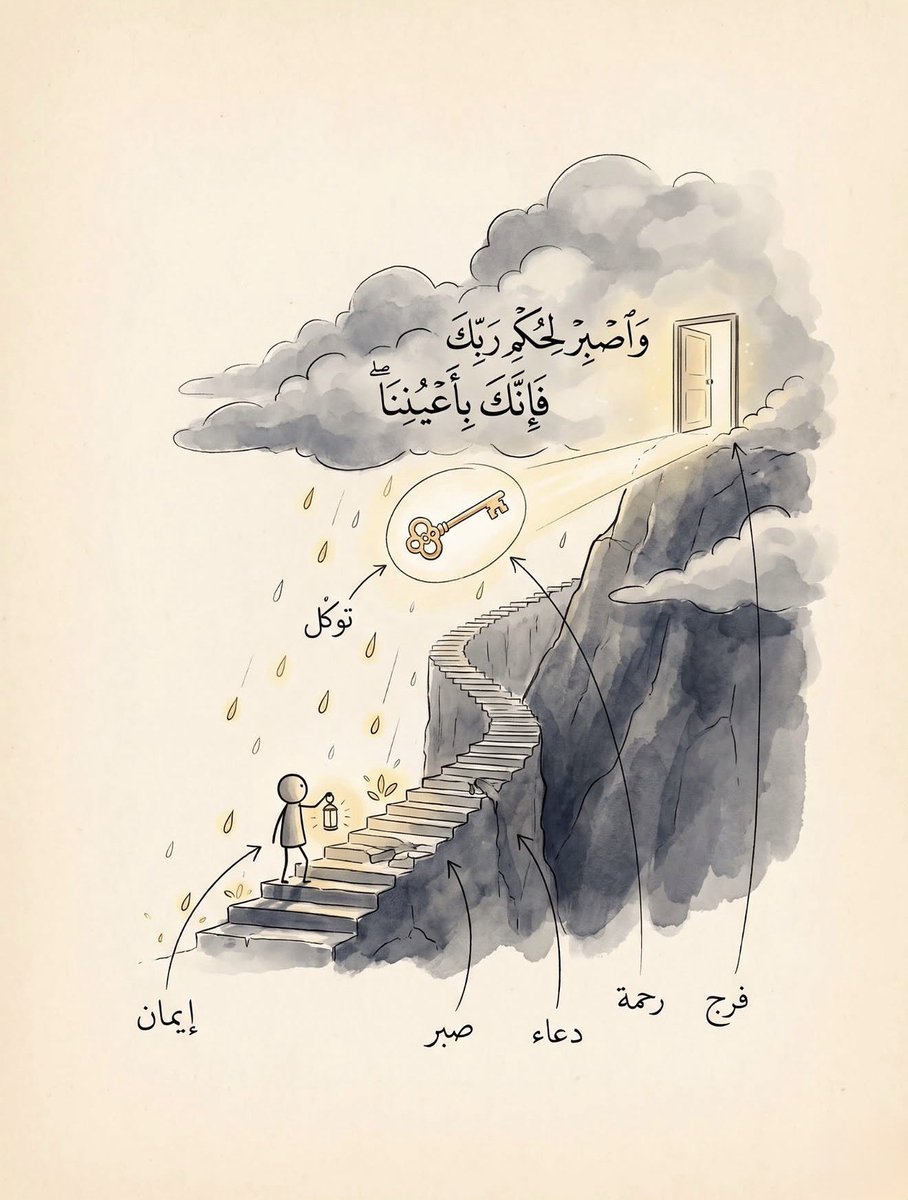 وَٱصْبِرْ لِحُكْمِ رَبِّكَ
فَإِنَّكَ بِأَعْيُنِنَا ۖ
توكْل
إيمان
صبر
دعاء
رحمة
فرج